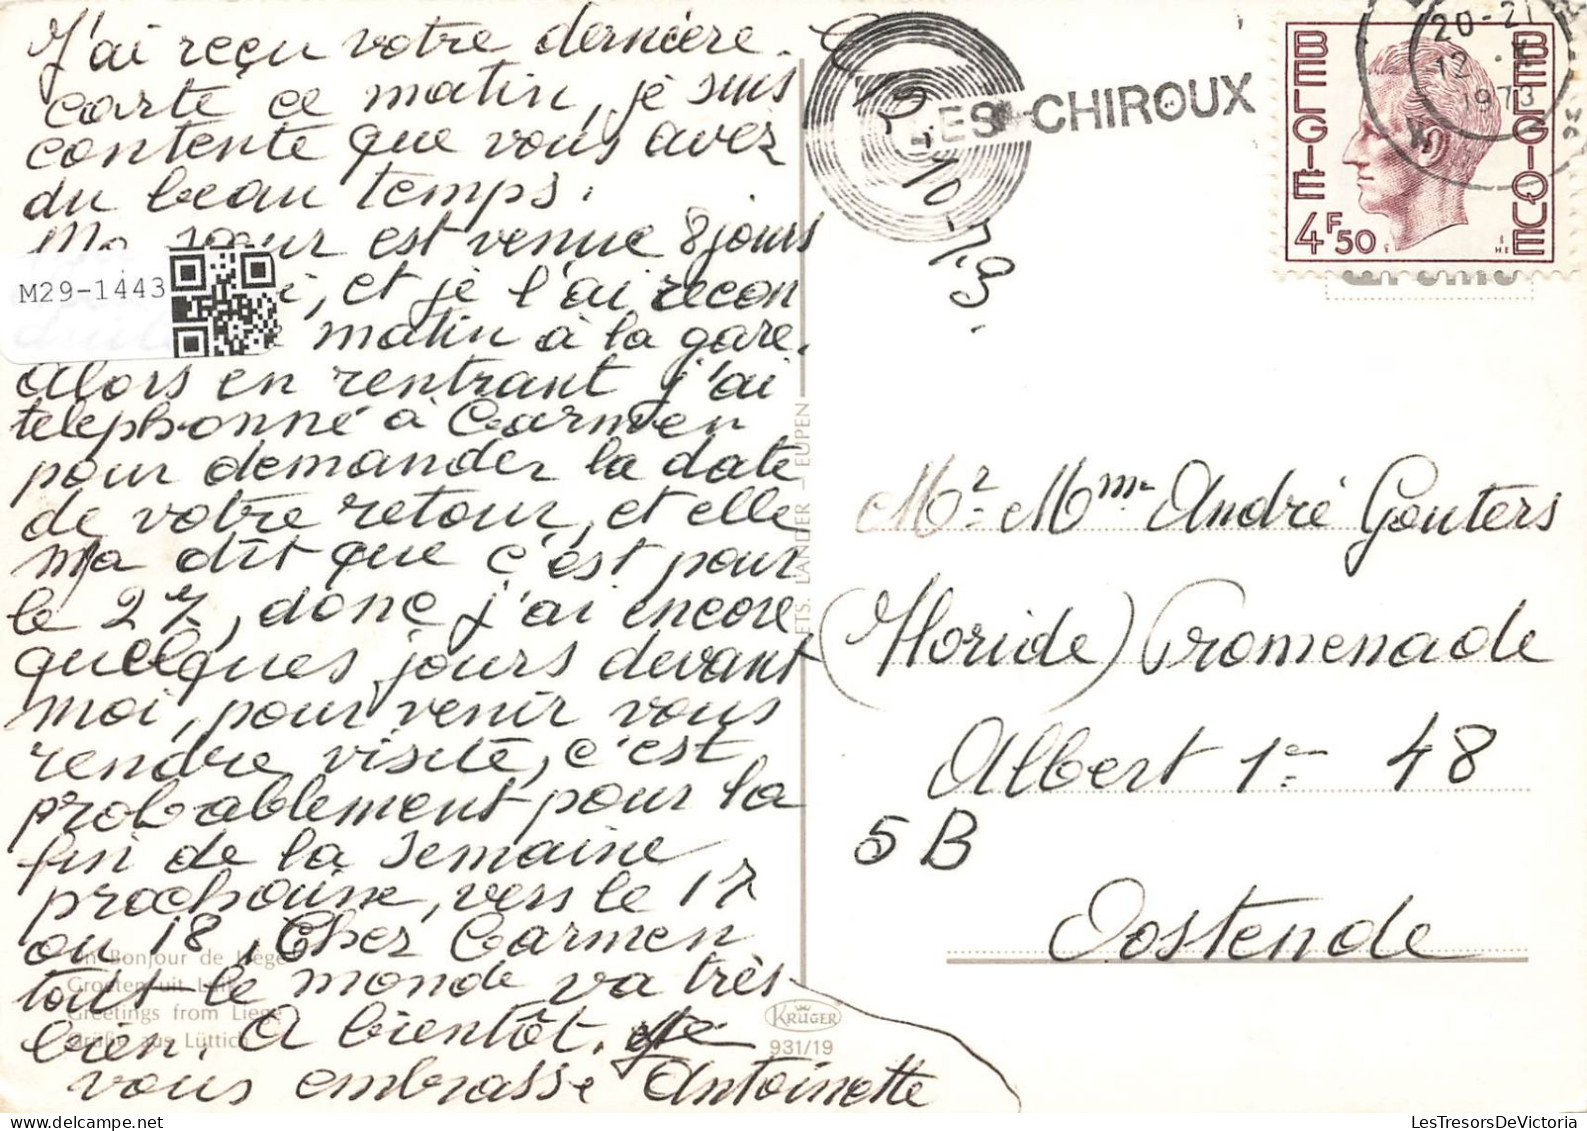 J'ai reçu votre dernière
carte ce matin, je suis
contente que vous avez
du beau temps.
Ma sœur est venue 8 jours
i, et je l'ai recon
duite matin à la gare.
Alors en rentrant j'ai
telephonné à Carmen
pour demander la date
de votre retour, et elle
m'a dit que c'est pour
le 27, donc j'ai encore
quelques jours devant
moi, pour venir vous
rendre visite, c'est
probablement pour la
fin de la semaine
prochaine, vers le 17
ou 18, Chez Carmen
tout le monde va très
bien. A bientôt. Je
vous embrasse Antoinette
12-10-73.
M29-1443
Un Bonjour de Liège
Groeten uit Luik
Greetings from Liege
Grüße aus Lüttich
ETS. LANDER - EUPEN
KRÜGER
931/19
LES CHIROUX
20-21
12
1973
BELGIE
BELGIQUE
4F50
Mr. Mme André Gouters
(Floride) Promenade
Albert 1er 48
5B
Oostende
LesTresorsDeVictoria